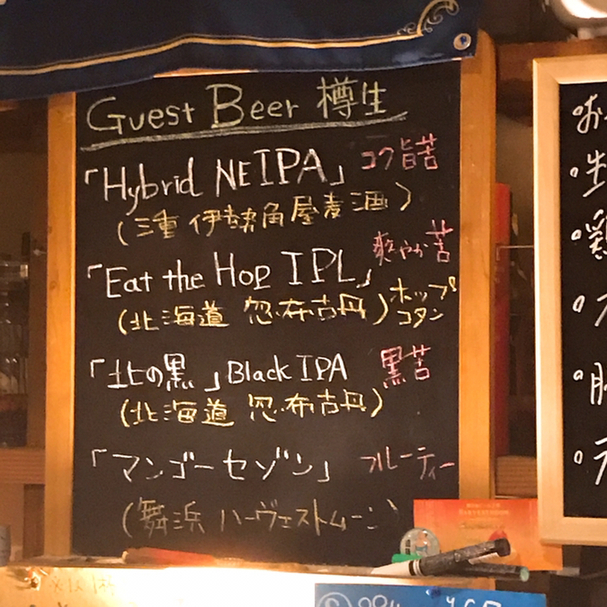 Guest Beer 樽生
「Hybrid NEIPA」 コク旨苦
(三重 伊勢角屋麦酒)
爽やか苦
「Eat the Hop IPL」
(北海道 忽布古丹) ホップコタン
「北の黒」Black IPA 黒苦
(北海道 忽布古丹)
「マンゴーセゾン」 フルーティー
(舞浜 ハーヴェストムーン)